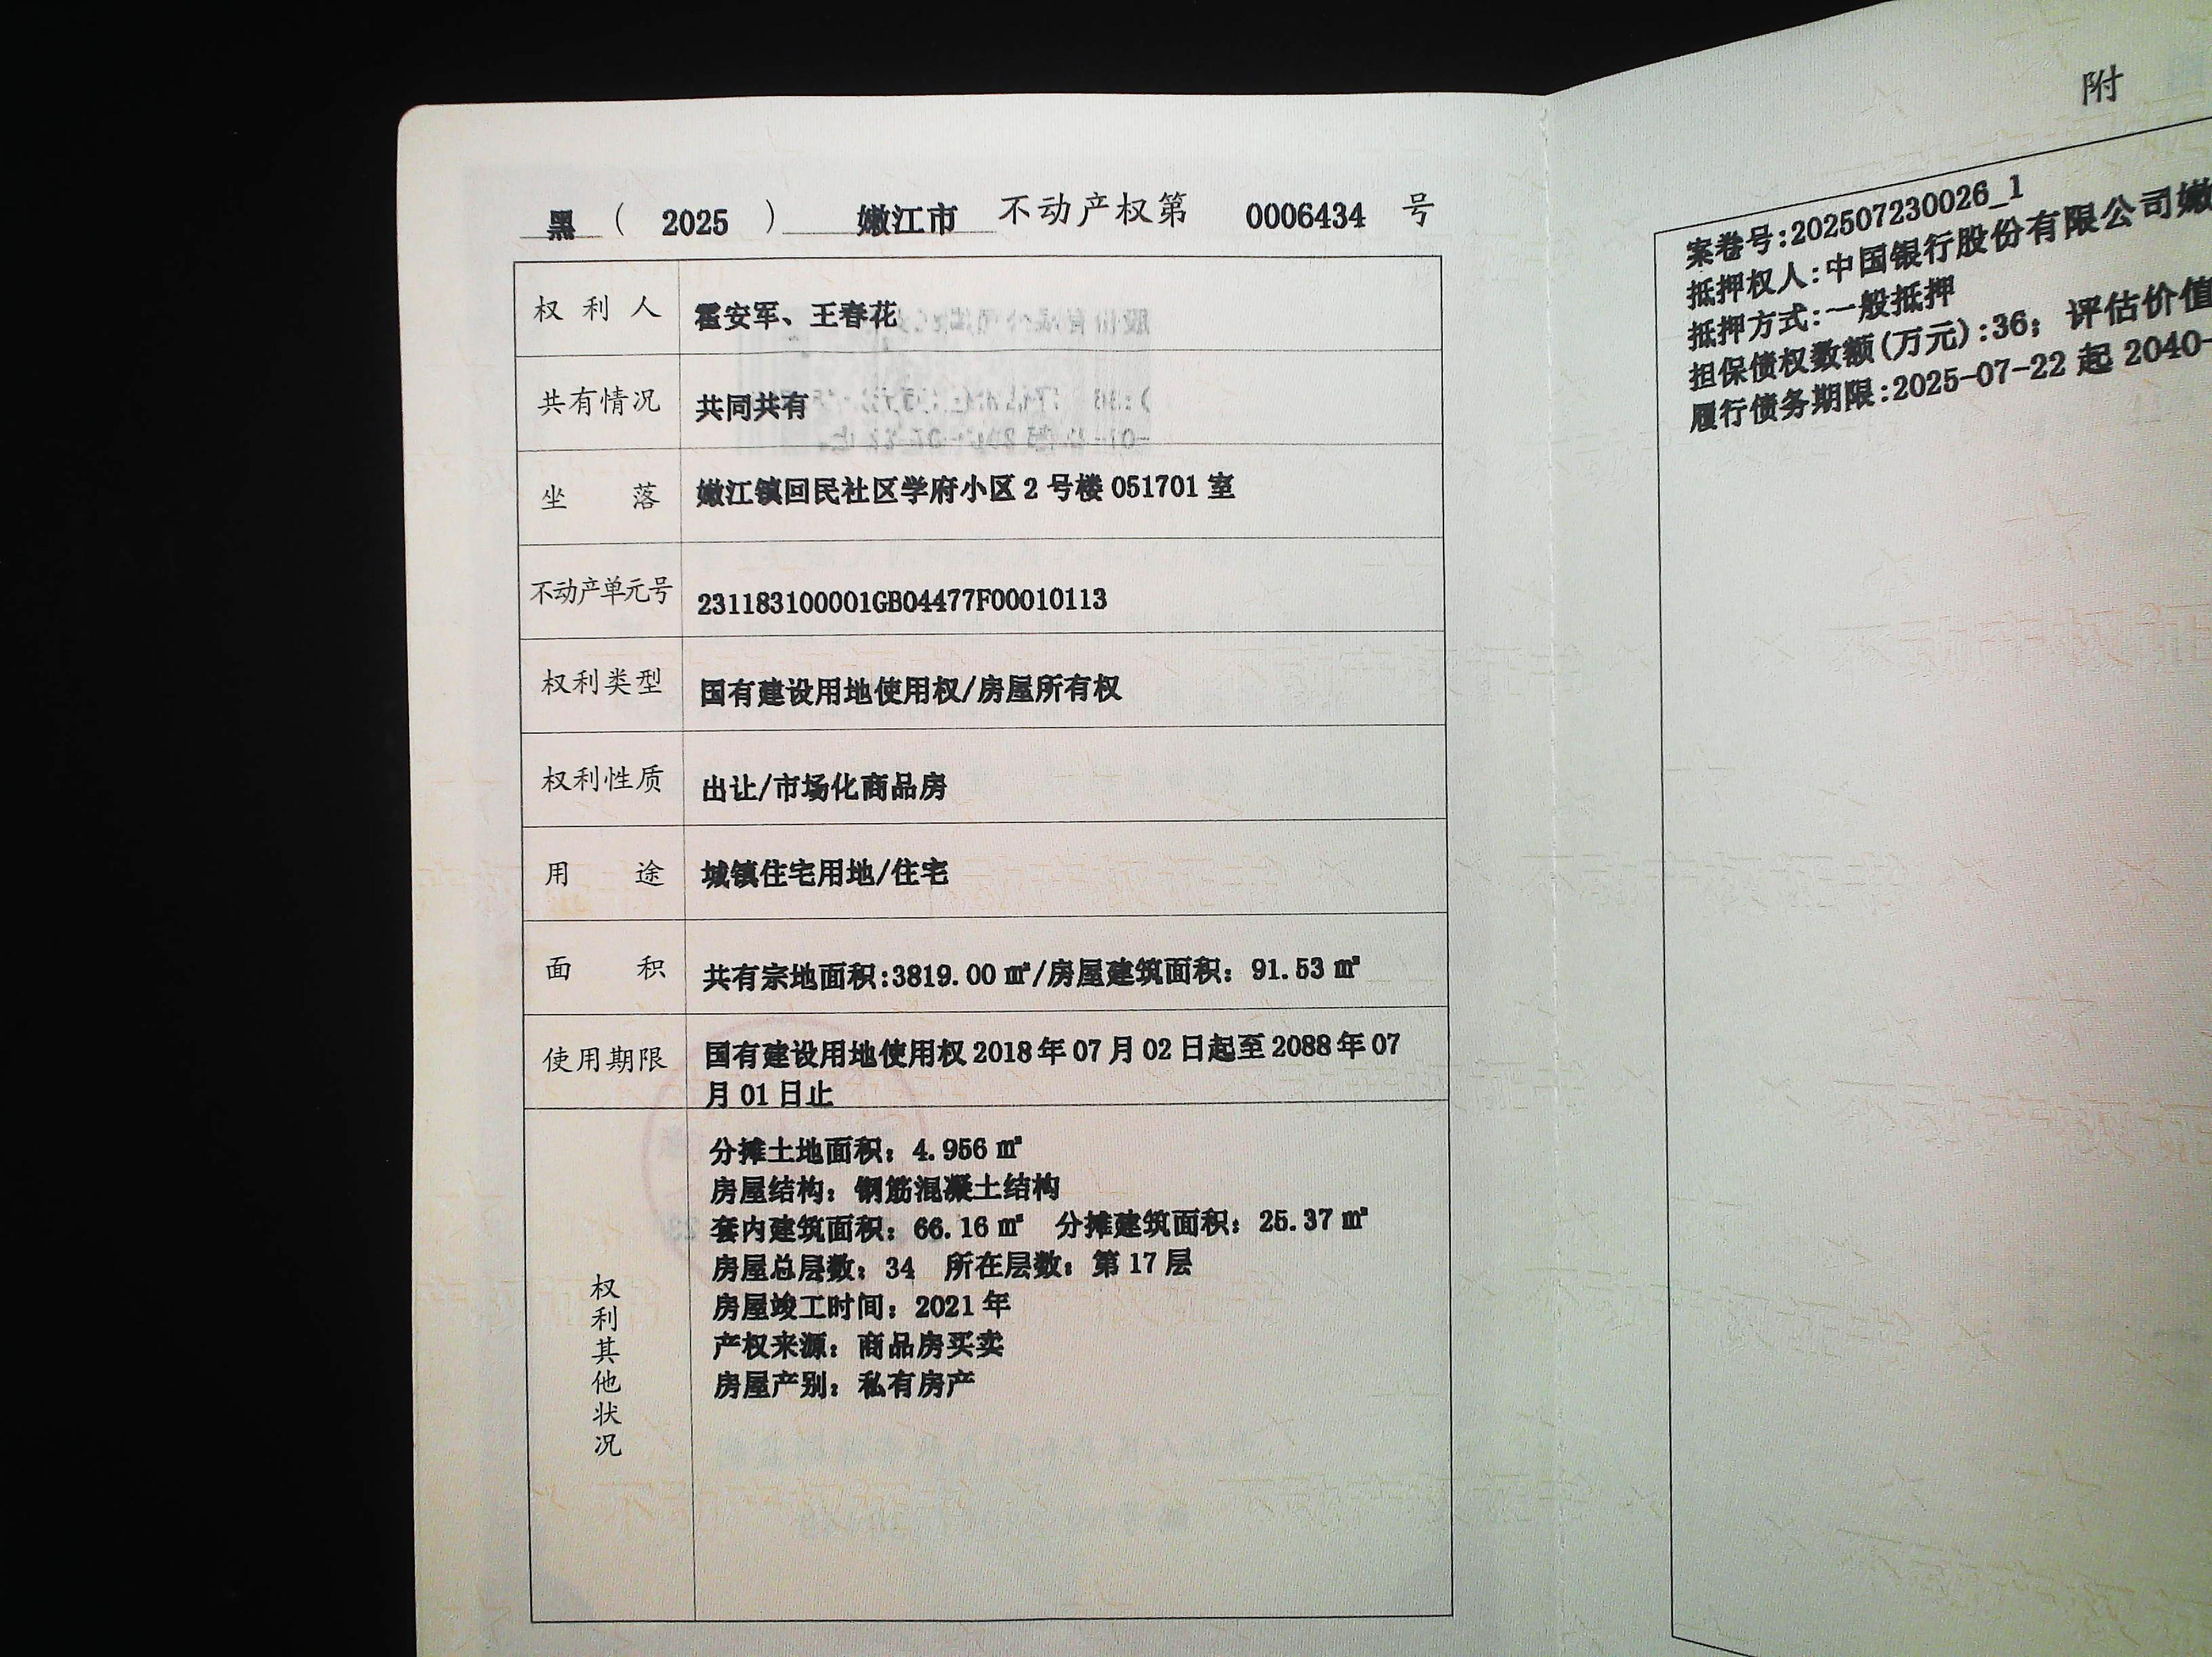 黑 ( 2025 ) 嫩江市 不动产权第 0006434 号
权利人 霍安军、王春花
共有情况 共同共有
坐落 嫩江镇回民社区学府小区 2 号楼 051701 室
不动产单元号 231183100001GB04477F00010113
权利类型 国有建设用地使用权/房屋所有权
权利性质 出让/市场化商品房
用途 城镇住宅用地/住宅
面积 共有宗地面积:3819.00 ㎡/房屋建筑面积：91.53 ㎡
使用期限 国有建设用地使用权 2018 年 07 月 02 日起至 2088 年 07
月 01 日止
权利其他状况
分摊土地面积：4.956 ㎡
房屋结构：钢筋混凝土结构
套内建筑面积：66.16 ㎡ 分摊建筑面积：25.37 ㎡
房屋总层数：34 所在层数：第 17 层
房屋竣工时间：2021 年
产权来源：商品房买卖
房屋产别：私有房产
附
案卷号:202507230026_1
抵押权人:中国银行股份有限公司嫩
抵押方式:一般抵押
担保债权数额(万元):36；评估价值
履行债务期限:2025-07-22 起 2040-